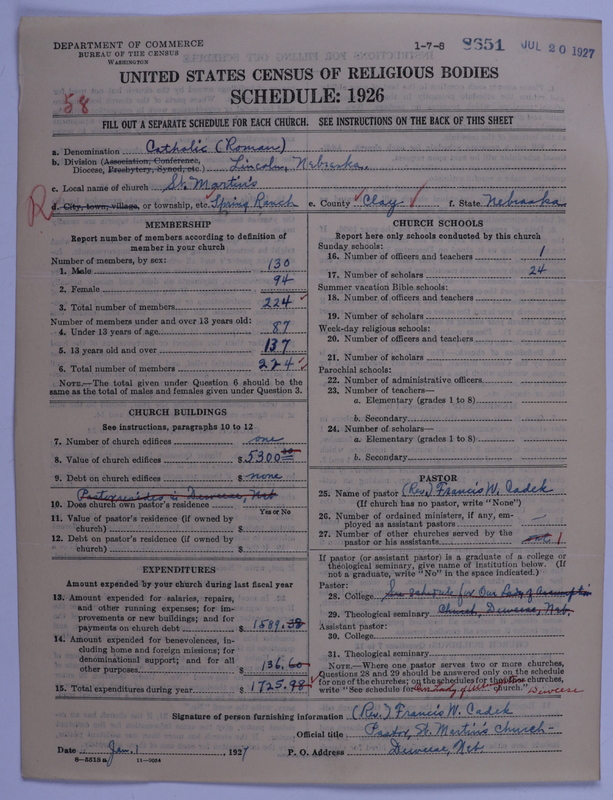 DEPARTMENT OF COMMERCE
BUREAU OF THE CENSUS
WASHINGTON
1-7-8 8651 JUL 20 1927
UNITED STATES CENSUS OF RELIGIOUS BODIES
58 SCHEDULE: 1926
FILL OUT A SEPARATE SCHEDULE FOR EACH CHURCH. SEE INSTRUCTIONS ON THE BACK OF THIS SHEET
a. Denomination Catholic (Roman)
b. Division (Association, Conference, Diocese, Presbytery, Synod, etc.) Lincoln, Nebraska.
c. Local name of church St. Martin's
R d. City, town, village, or township, etc. Spring Ranch e. County Clay f. State Nebraska
MEMBERSHIP
Report number of members according to definition of
member in your church
Number of members, by sex:
1. Male 130
2. Female 94
3. Total number of members 224
Number of members under and over 13 years old:
4. Under 13 years of age 87
5. 13 years old and over 137
6. Total number of members 224
NOTE.—The total given under Question 6 should be the
same as the total of males and females given under Question 3.
CHURCH BUILDINGS
See instructions, paragraphs 10 to 12
7. Number of church edifices one
8. Value of church edifices $ 5300 00
9. Debt on church edifices $ none
Pastor resides in Deweese, Neb
10. Does church own pastor's residence
Yes or No
11. Value of pastor's residence (if owned by
church) $
12. Debt on pastor's residence (if owned by
church) $
EXPENDITURES
Amount expended by your church during last fiscal year
13. Amount expended for salaries, repairs,
and other running expenses; for im-
provements or new buildings; and for
payments on church debt $ 1589.38
14. Amount expended for benevolences, in-
cluding home and foreign missions; for
denominational support; and for all
other purposes. $ 136.60
15. Total expenditures during year $ 1725.98
CHURCH SCHOOLS
Report here only schools conducted by this church
Sunday schools:
16. Number of officers and teachers 1
17. Number of scholars 24
Summer vacation Bible schools:
18. Number of officers and teachers
19. Number of scholars
Week-day religious schools:
20. Number of officers and teachers
21. Number of scholars
Parochial schools:
22. Number of administrative officers
23. Number of teachers—
a. Elementary (grades 1 to 8)
b. Secondary
24. Number of scholars—
a. Elementary (grades 1 to 8)
b. Secondary
PASTOR
25. Name of pastor (Rev.) Francis W. Cadek
(If church has no pastor, write "None")
26. Number of ordained ministers, if any, em-
ployed as assistant pastors —
27. Number of other churches served by the
pastor or his assistants 1
If pastor (or assistant pastor) is a graduate of a college or
theological seminary, give name of institution below. (If
not a graduate, write "No" in the space indicated.)
Pastor:
28. College See schedule for Our Lady of Assumption
29. Theological seminary Church, Deweese, Neb.
Assistant pastor:
30. College
31. Theological seminary
NOTE.—Where one pastor serves two or more churches,
Questions 28 and 29 should be answered only on the schedule
for one of the churches; on the schedules for the other churches,
write "See schedule for Our Lady of church." Deweese
Signature of person furnishing information (Rev.) Francis W. Cadek
Official title Pastor, St. Martin's church-
Date Jan. 1 1927 P. O. Address Deweese, Neb.
8-3518a 11-9034